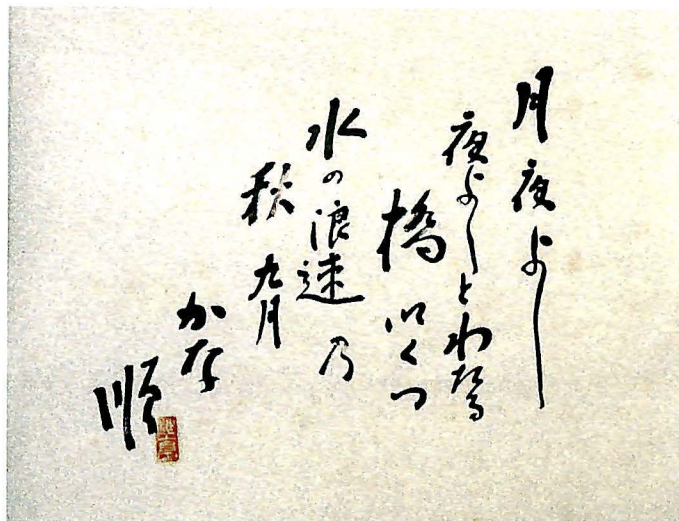 月夜よし
夜よしとわたる
橋いくつ
水の浪速乃
秋九月
かな
順